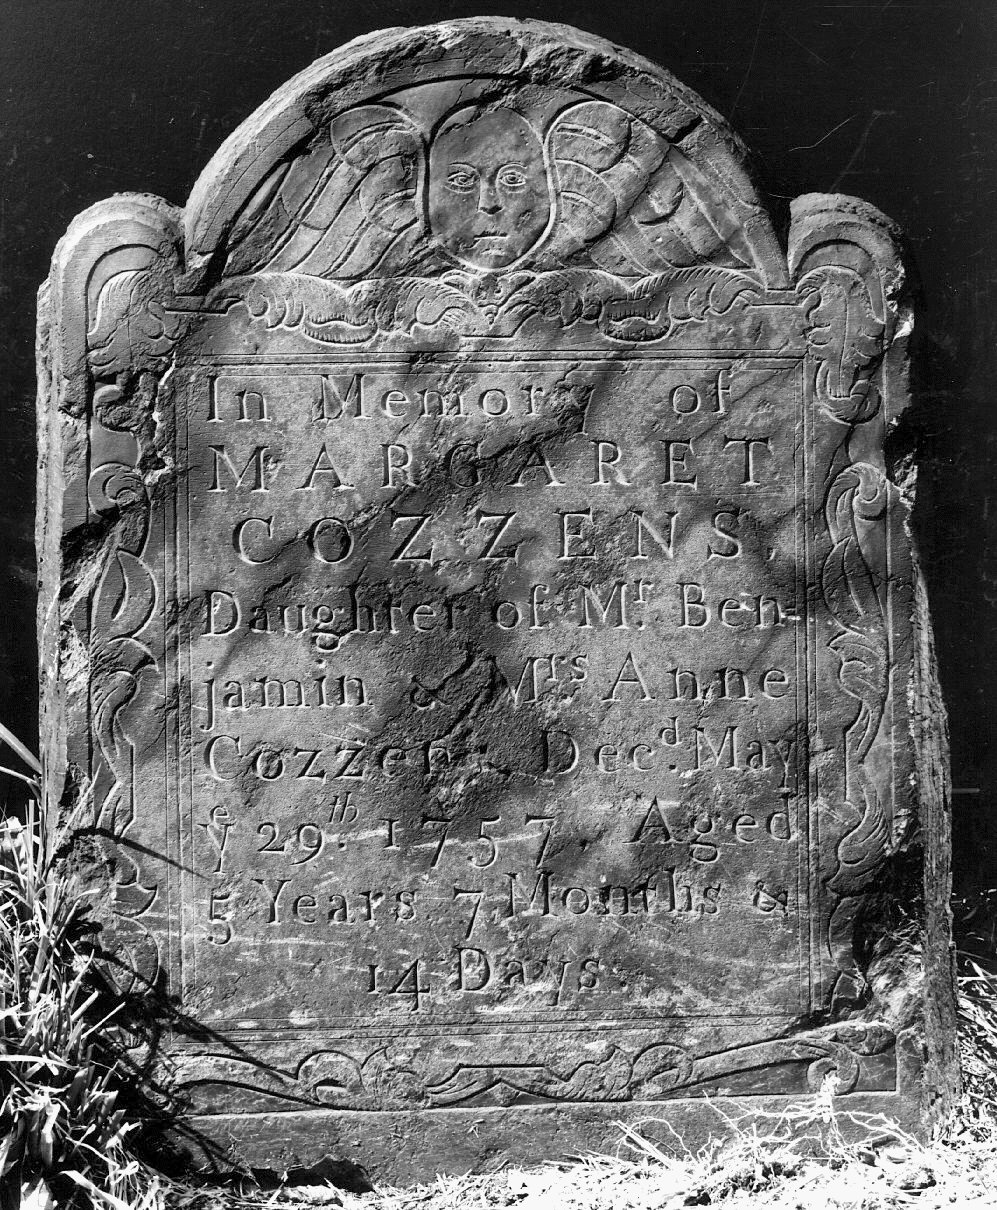 In Memory of
MARGARET
COZZENS
Daughter of Mr. Ben-
jamin & Mrs Anne
Cozzens Decd. May
ye 29th. 1757. Aged
5 Years 7 Months &
14 Days